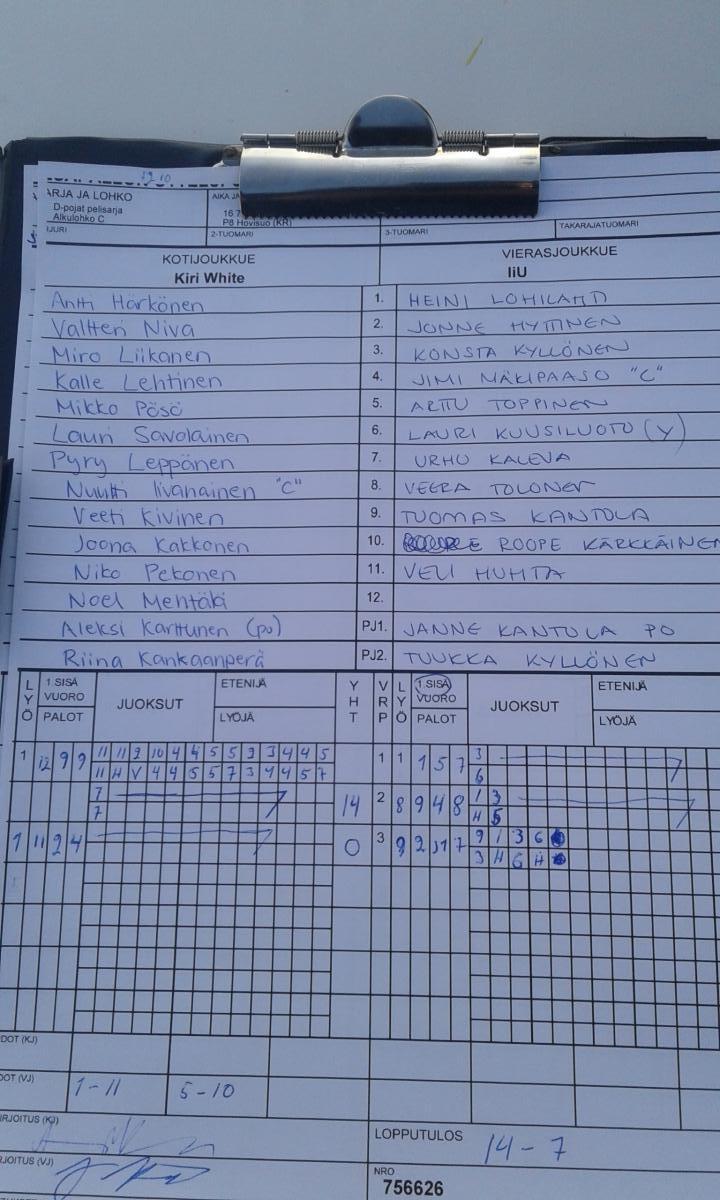 19.10
ARJA JA LOHKO
D-pojat pelisarja
Alkulohko C
AIKA JA
16.7
P8 Hovisuo (KR)
2-TUOMARI 3-TUOMARI TAKARAJATUOMARI
KOTIJOUKKUE VIERASJOUKKUE
Kiri White IiU
Antti Härkönen 1. HEINI LOHILAHTI
Valtteri Niva 2. JONNE HYTTINEN
Miro Liikanen 3. KONSTA KYLLÖNEN
Kalle Lehtinen 4. JIMI MÄKIPAASO "C"
Mikko Pösö 5. ARTTU TOPPINEN
Lauri Savolainen 6. LAURI KUUSILUOTO (V)
Pyry Leppänen 7. URHO KALEVA
Nuutti Iivanainen "C" 8. VEERA TOLONEN
Veeti Kivinen 9. TUOMAS KANTOLA
Joona Kakkonen 10. ROOPE KÄRKKÄINEN
Niko Pekonen 11. VELI HUHTA
Noel Mehtäki 12.
Aleksi Karttunen (po) PJ1. JANNE KANTOLA PO
Riina Kankaanperä PJ2. TUUKKA KYLLÖNEN
LYÖ 1.SISÄ VUORO PALOT JUOKSUT ETENIJÄ LYÖJÄ YHT VRP LYÖ 1.SISÄ VUORO PALOT JUOKSUT ETENIJÄ LYÖJÄ
1 12 9 9 11 11 2 10 4 4 5 5 9 3 4 4 5 1 1 1 5 7 3
11 H V 4 4 5 5 7 3 4 4 5 7 6
7 14 2 8 9 4 8 1 3
7 4 5
1 11 2 4 0 3 9 2 11 7 9 1 3 6
3 4 6 4
DOT (KJ)
DOT (VJ) 1-11 5-10
IRJOITUS (KJ)
LOPPUTULOS 14-7
RJOITUS (VJ)
NRO
756626